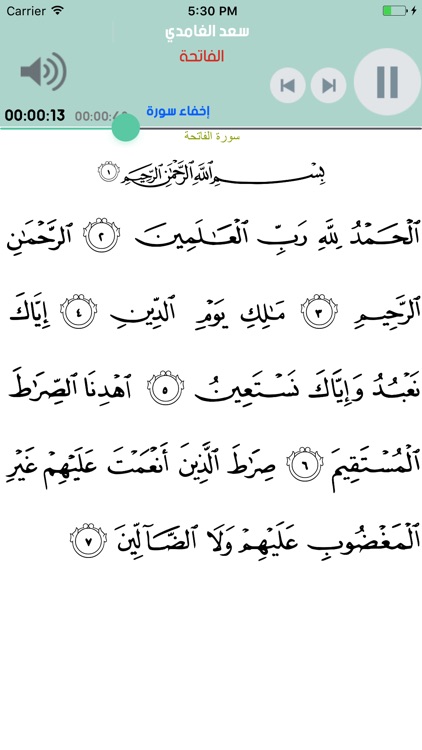 Carrier 5:30 PM
سعد الغامدي
الفاتحة
00:00:13 إخفاء سورة
سورة الفاتحة
بِسْمِ ٱللَّهِ ٱلرَّحْمَٰنِ ٱلرَّحِيمِ ١
ٱلْحَمْدُ لِلَّهِ رَبِّ ٱلْعَٰلَمِينَ ٢ ٱلرَّحْمَٰنِ
ٱلرَّحِيمِ ٣ مَٰلِكِ يَوْمِ ٱلدِّينِ ٤ إِيَّاكَ
نَعْبُدُ وَإِيَّاكَ نَسْتَعِينُ ٥ ٱهْدِنَا ٱلصِّرَٰطَ
ٱلْمُسْتَقِيمَ ٦ صِرَٰطَ ٱلَّذِينَ أَنْعَمْتَ عَلَيْهِمْ غَيْرِ
ٱلْمَغْضُوبِ عَلَيْهِمْ وَلَا ٱلضَّآلِّينَ ٧